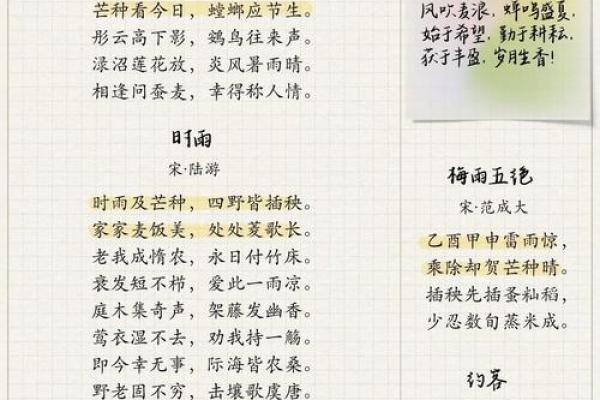 芒种看今日，螳螂应节生。
彤云高下影，鴳鸟往来声。
渌沼莲花放，炎风暑雨晴。
相逢问蚕麦，幸得称人情。
时雨
宋·陆游
时雨及芒种，四野皆插秧。
家家麦饭美，处处菱歌长。
老我成惰农，永日付竹床。
衰发短不栉，爱此一雨凉。
庭木集奇声，架藤发幽香。
莺衣湿不去，劝我持一觞。
即今幸无事，际海皆农桑。
野老固不穷，击壤歌虞唐。
风吹麦浪，蝉鸣盛夏，
始于希望，勤于耕耘，
获于丰盈，岁月生香！
梅雨五绝
宋·范成大
乙酉甲申雷雨惊，
乘除却贺芒种晴。
插秧先插蚤籼稻，
少忍数旬蒸米成。
约客